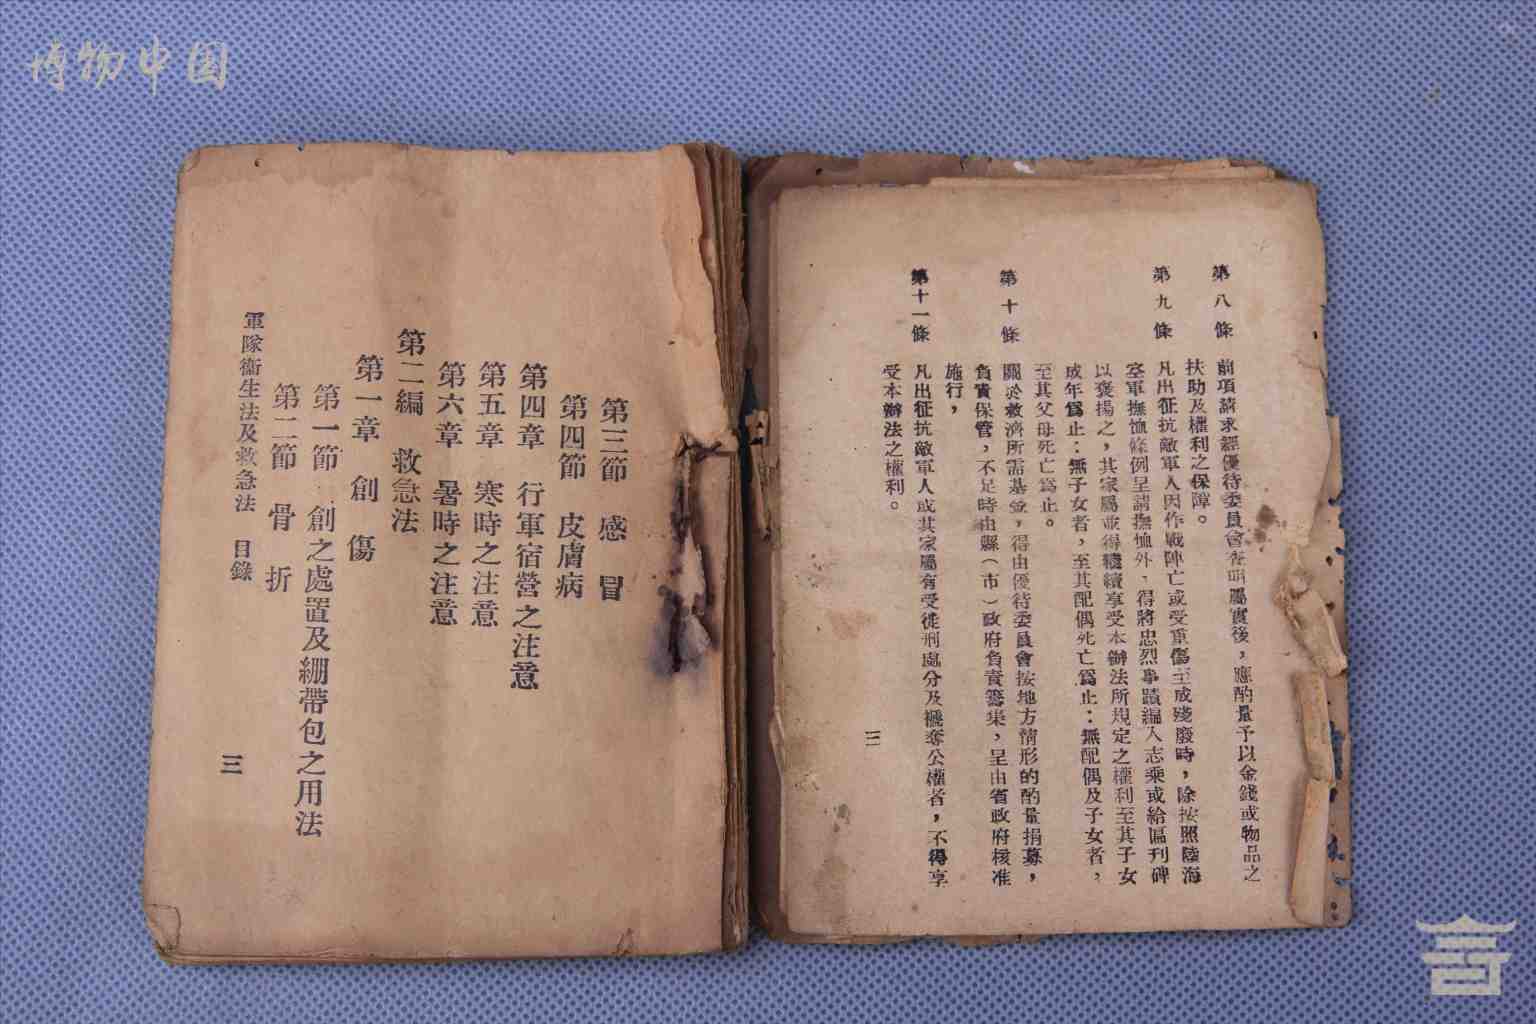 博物中国
第八條 前項請求經優待委員會查明屬實後，應酌量予以金錢或物品之
扶助及權利之保障。
第九條 凡出征抗敵軍人因作戰陣亡或受重傷至成殘廢時，除按照陸海
空軍撫恤條例呈請撫恤外，得將忠烈事蹟編入志乘或給區刊碑
以褒揚之，其家屬並得繼續享受本辦法所規定之權利至其子女
成年爲止：無子女者，至其配偶死亡爲止：無配偶及子女者，
至其父母死亡爲止。
第十條 關於救濟所需基金，得由優待委員會按地方情形的酌量捐募，
負責保管，不足時由縣（市）政府負責籌集，呈由省政府核准
施行，
第十一條 凡出征抗敵軍人或其家屬有受徒刑處分及褫奪公權者，不得享
受本辦法之權利。
三
第三節 感冒
第四節 皮膚病
第四章 行軍宿營之注意
第五章 寒時之注意
第六章 暑時之注意
第二編 救急法
第一章 創傷
第一節 創之處置及綳帶包之用法
第二節 骨折
軍隊衞生法及救急法 目錄
三